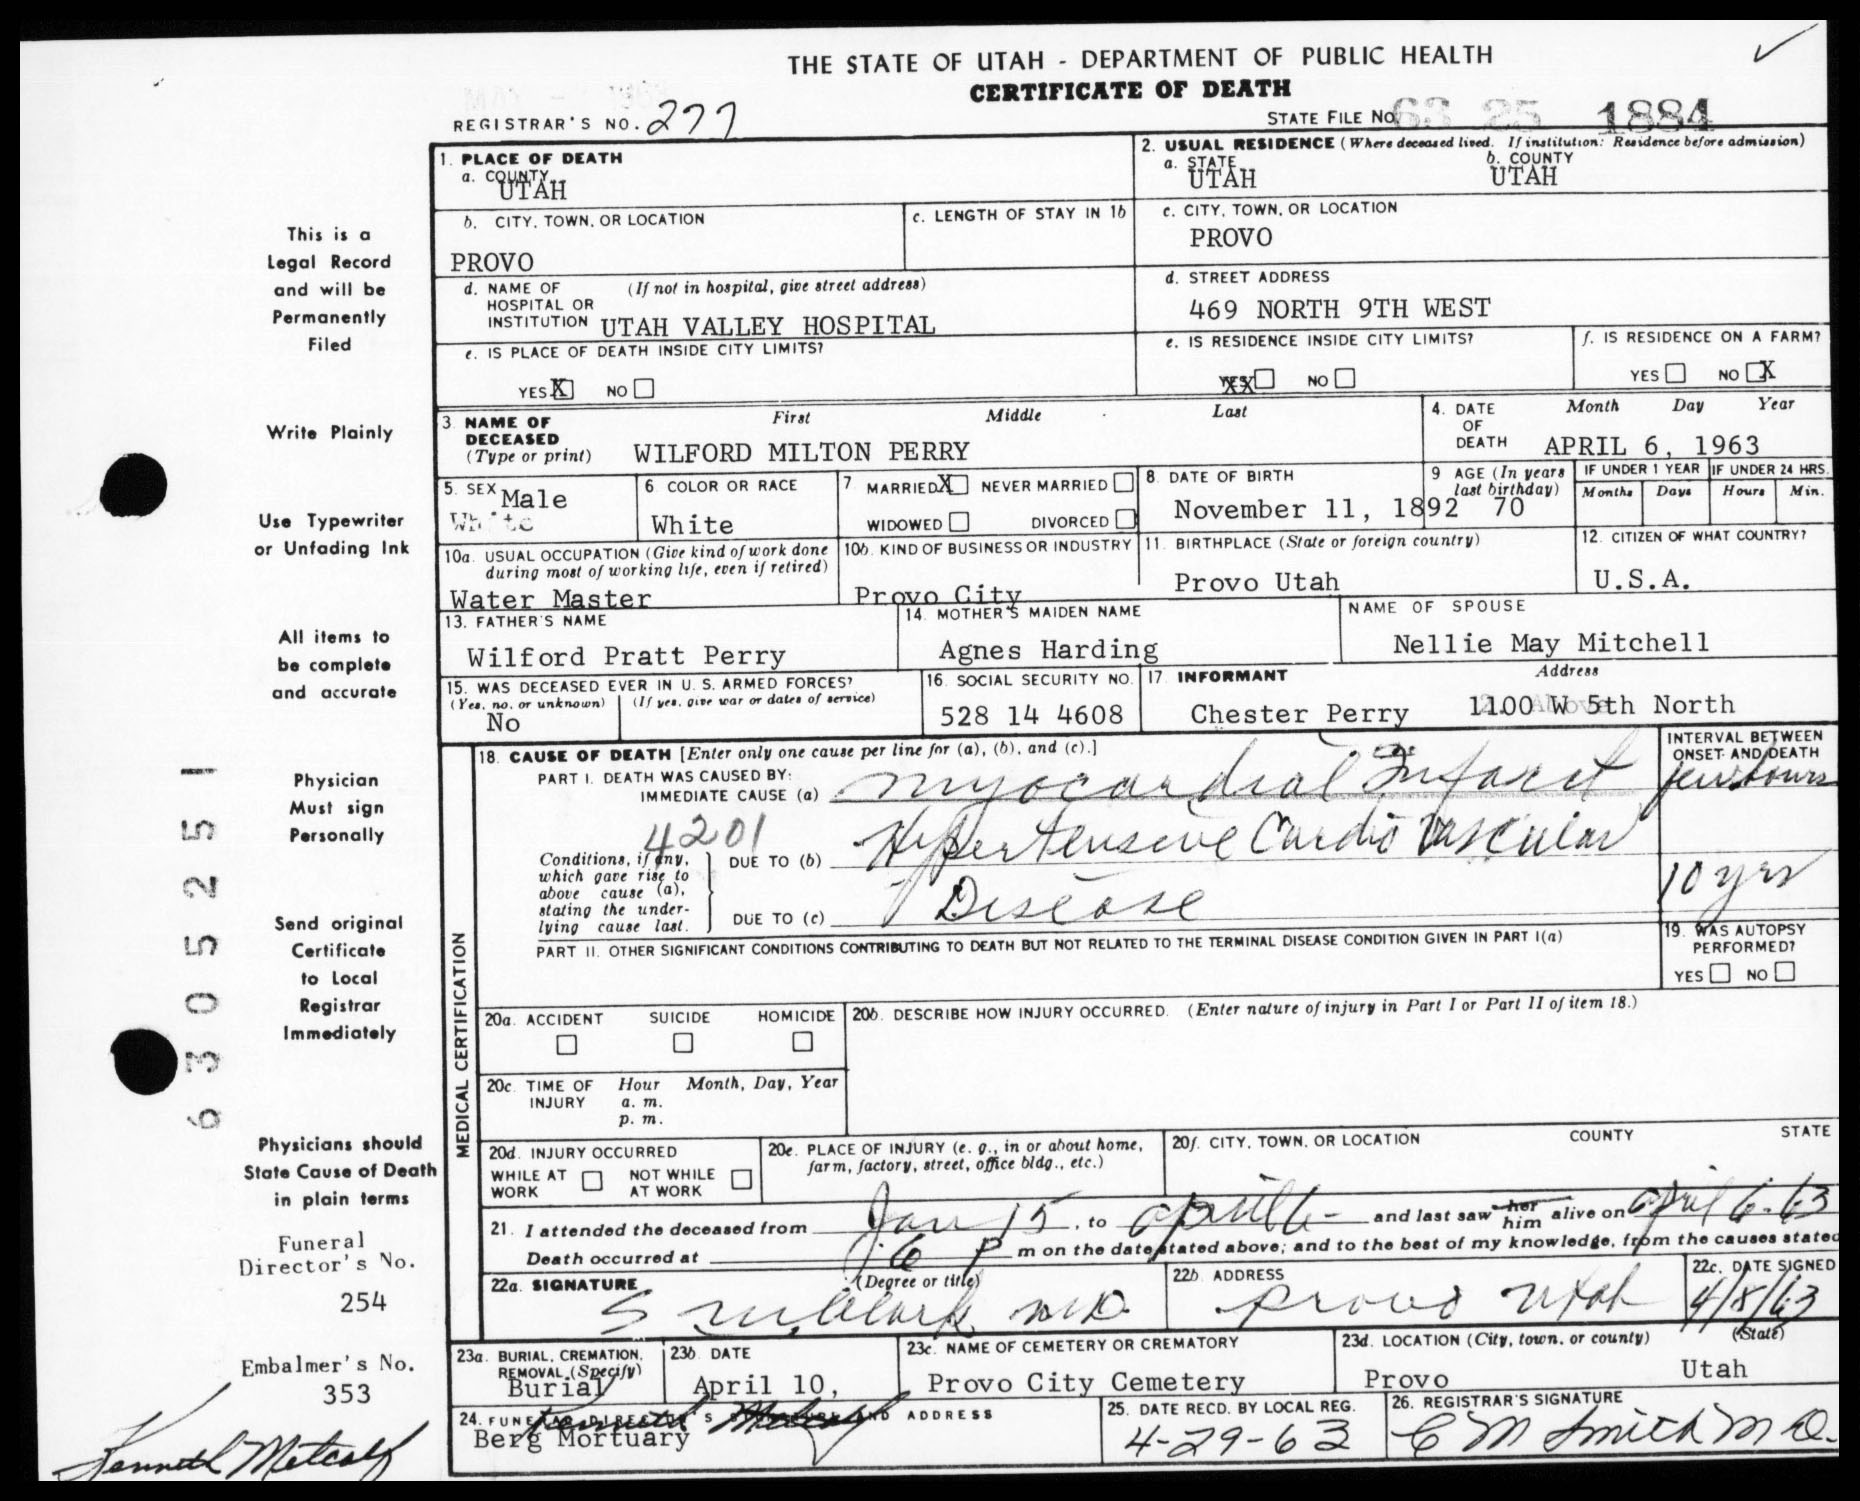 THE STATE OF UTAH - DEPARTMENT OF PUBLIC HEALTH
CERTIFICATE OF DEATH
REGISTRAR'S NO. 277
STATE FILE NO. 63 25 1884
This is a
Legal Record
and will be
Permanently
Filed
Write Plainly
Use Typewriter
or Unfading Ink
All items to
be complete
and accurate
Physician
Must sign
Personally
Send original
Certificate
to Local
Registrar
Immediately
Physicians should
State Cause of Death
in plain terms
Funeral
Director's No.
254
Embalmer's No.
353
Kenneth Metcalf
6305251
1. PLACE OF DEATH
a. COUNTY
UTAH
2. USUAL RESIDENCE (Where deceased lived. If institution: Residence before admission)
a. STATE
UTAH
b. COUNTY
UTAH
b. CITY, TOWN, OR LOCATION
PROVO
c. LENGTH OF STAY IN 1b
c. CITY, TOWN, OR LOCATION
PROVO
d. NAME OF (If not in hospital, give street address)
HOSPITAL OR
INSTITUTION UTAH VALLEY HOSPITAL
d. STREET ADDRESS
469 NORTH 9TH WEST
e. IS PLACE OF DEATH INSIDE CITY LIMITS?
YES X NO
e. IS RESIDENCE INSIDE CITY LIMITS?
YES XX NO
f. IS RESIDENCE ON A FARM?
YES NO X
3. NAME OF DECEASED
(Type or print)
First Middle Last
WILFORD MILTON PERRY
4. DATE OF DEATH
Month Day Year
APRIL 6, 1963
5. SEX Male
White
6. COLOR OR RACE
White
7. MARRIED X NEVER MARRIED
WIDOWED DIVORCED
8. DATE OF BIRTH
November 11, 1892
9 AGE (In years
last birthday)
70
IF UNDER 1 YEAR
Months Days
IF UNDER 24 HRS.
Hours Min.
10a. USUAL OCCUPATION (Give kind of work done
during most of working life, even if retired)
Water Master
10b. KIND OF BUSINESS OR INDUSTRY
Provo City
11. BIRTHPLACE (State or foreign country)
Provo Utah
12. CITIZEN OF WHAT COUNTRY?
U.S.A.
13. FATHER'S NAME
Wilford Pratt Perry
14. MOTHER'S MAIDEN NAME
Agnes Harding
NAME OF SPOUSE
Nellie May Mitchell
15. WAS DECEASED EVER IN U. S. ARMED FORCES?
(Yes, no, or unknown) (If yes, give war or dates of service)
No
16. SOCIAL SECURITY NO.
528 14 4608
17. INFORMANT Address
Chester Perry 1100 W 5th North
MEDICAL CERTIFICATION
18. CAUSE OF DEATH [Enter only one cause per line for (a), (b), and (c).]
PART I. DEATH WAS CAUSED BY:
IMMEDIATE CAUSE (a) Myocardial Infarct
INTERVAL BETWEEN
ONSET AND DEATH
few hours
4201
Conditions, if any,
which gave rise to
above cause (a),
stating the under-
lying cause last.
DUE TO (b) Hypertensive Cardio Vascular
10 yrs
DUE TO (c) Disease
PART II. OTHER SIGNIFICANT CONDITIONS CONTRIBUTING TO DEATH BUT NOT RELATED TO THE TERMINAL DISEASE CONDITION GIVEN IN PART I(a)
19. WAS AUTOPSY
PERFORMED?
YES NO
20a. ACCIDENT SUICIDE HOMICIDE
20b. DESCRIBE HOW INJURY OCCURRED. (Enter nature of injury in Part I or Part II of item 18.)
20c. TIME OF INJURY
Hour Month, Day, Year
a. m.
p. m.
20d. INJURY OCCURRED
WHILE AT WORK NOT WHILE AT WORK
20e. PLACE OF INJURY (e. g., in or about home,
farm, factory, street, office bldg., etc.)
20f. CITY, TOWN, OR LOCATION COUNTY STATE
21. I attended the deceased from Jan 15, to April 6- and last saw her him alive on April 6-63
Death occurred at 6 P m on the date stated above; and to the best of my knowledge, from the causes stated
22a. SIGNATURE (Degree or title)
S M Clark MD.
22b. ADDRESS
Provo Utah
22c. DATE SIGNED
4/8/63
23a. BURIAL, CREMATION,
REMOVAL (Specify)
Burial
23b. DATE
April 10,
23c. NAME OF CEMETERY OR CREMATORY
Provo City Cemetery
23d. LOCATION (City, town, or county) (State)
Provo Utah
24. FUNERAL DIRECTOR'S SIGNATURE AND ADDRESS
Kenneth Metcalf
Berg Mortuary
25. DATE RECD. BY LOCAL REG.
4-29-63
26. REGISTRAR'S SIGNATURE
C M Smith M D.